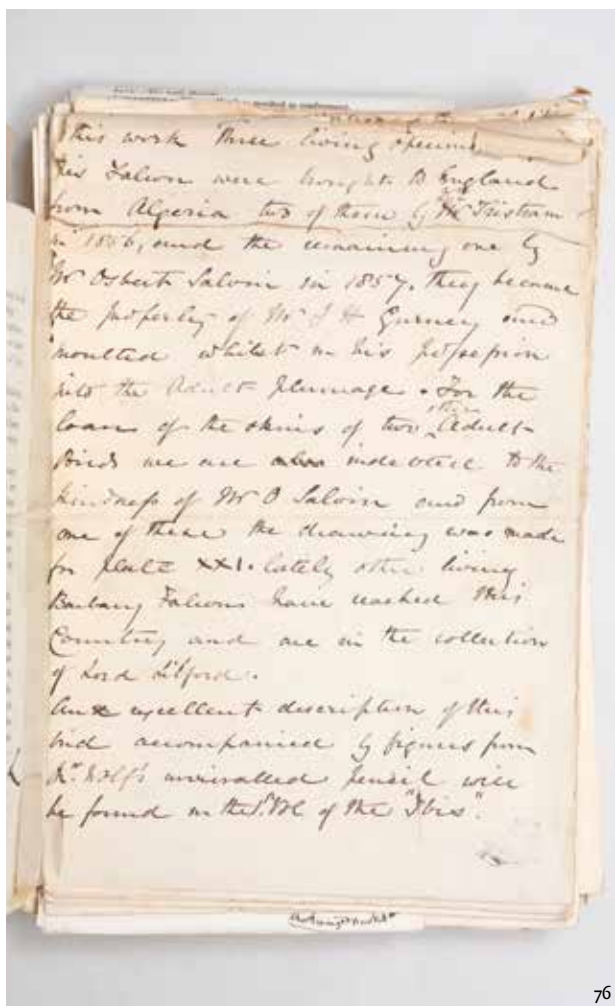 this work Three living specimens
this Falcon were brought to England
from Algeria two of them by Mr Tristram
in 1856, and the remaining one by
Mr Osbert Salvin in 1857, they became
the property of Mr J H Gurney and
moulted whilst in his possession
into the Adult plumage. For the
loan of the skins of two other Adult
Birds we are also indebted to the
kindness of Mr O Salvin and from
one of these the drawing was made
for plate XXI. lately other living
Barbary Falcons have reached this
Country and are in the collection
of Lord Lilford.
An excellent description of this
bird accompanied by figures from
Mr Wolf's unrivalled pencil will
be found in the 1st Vol of the "Ibis".
76